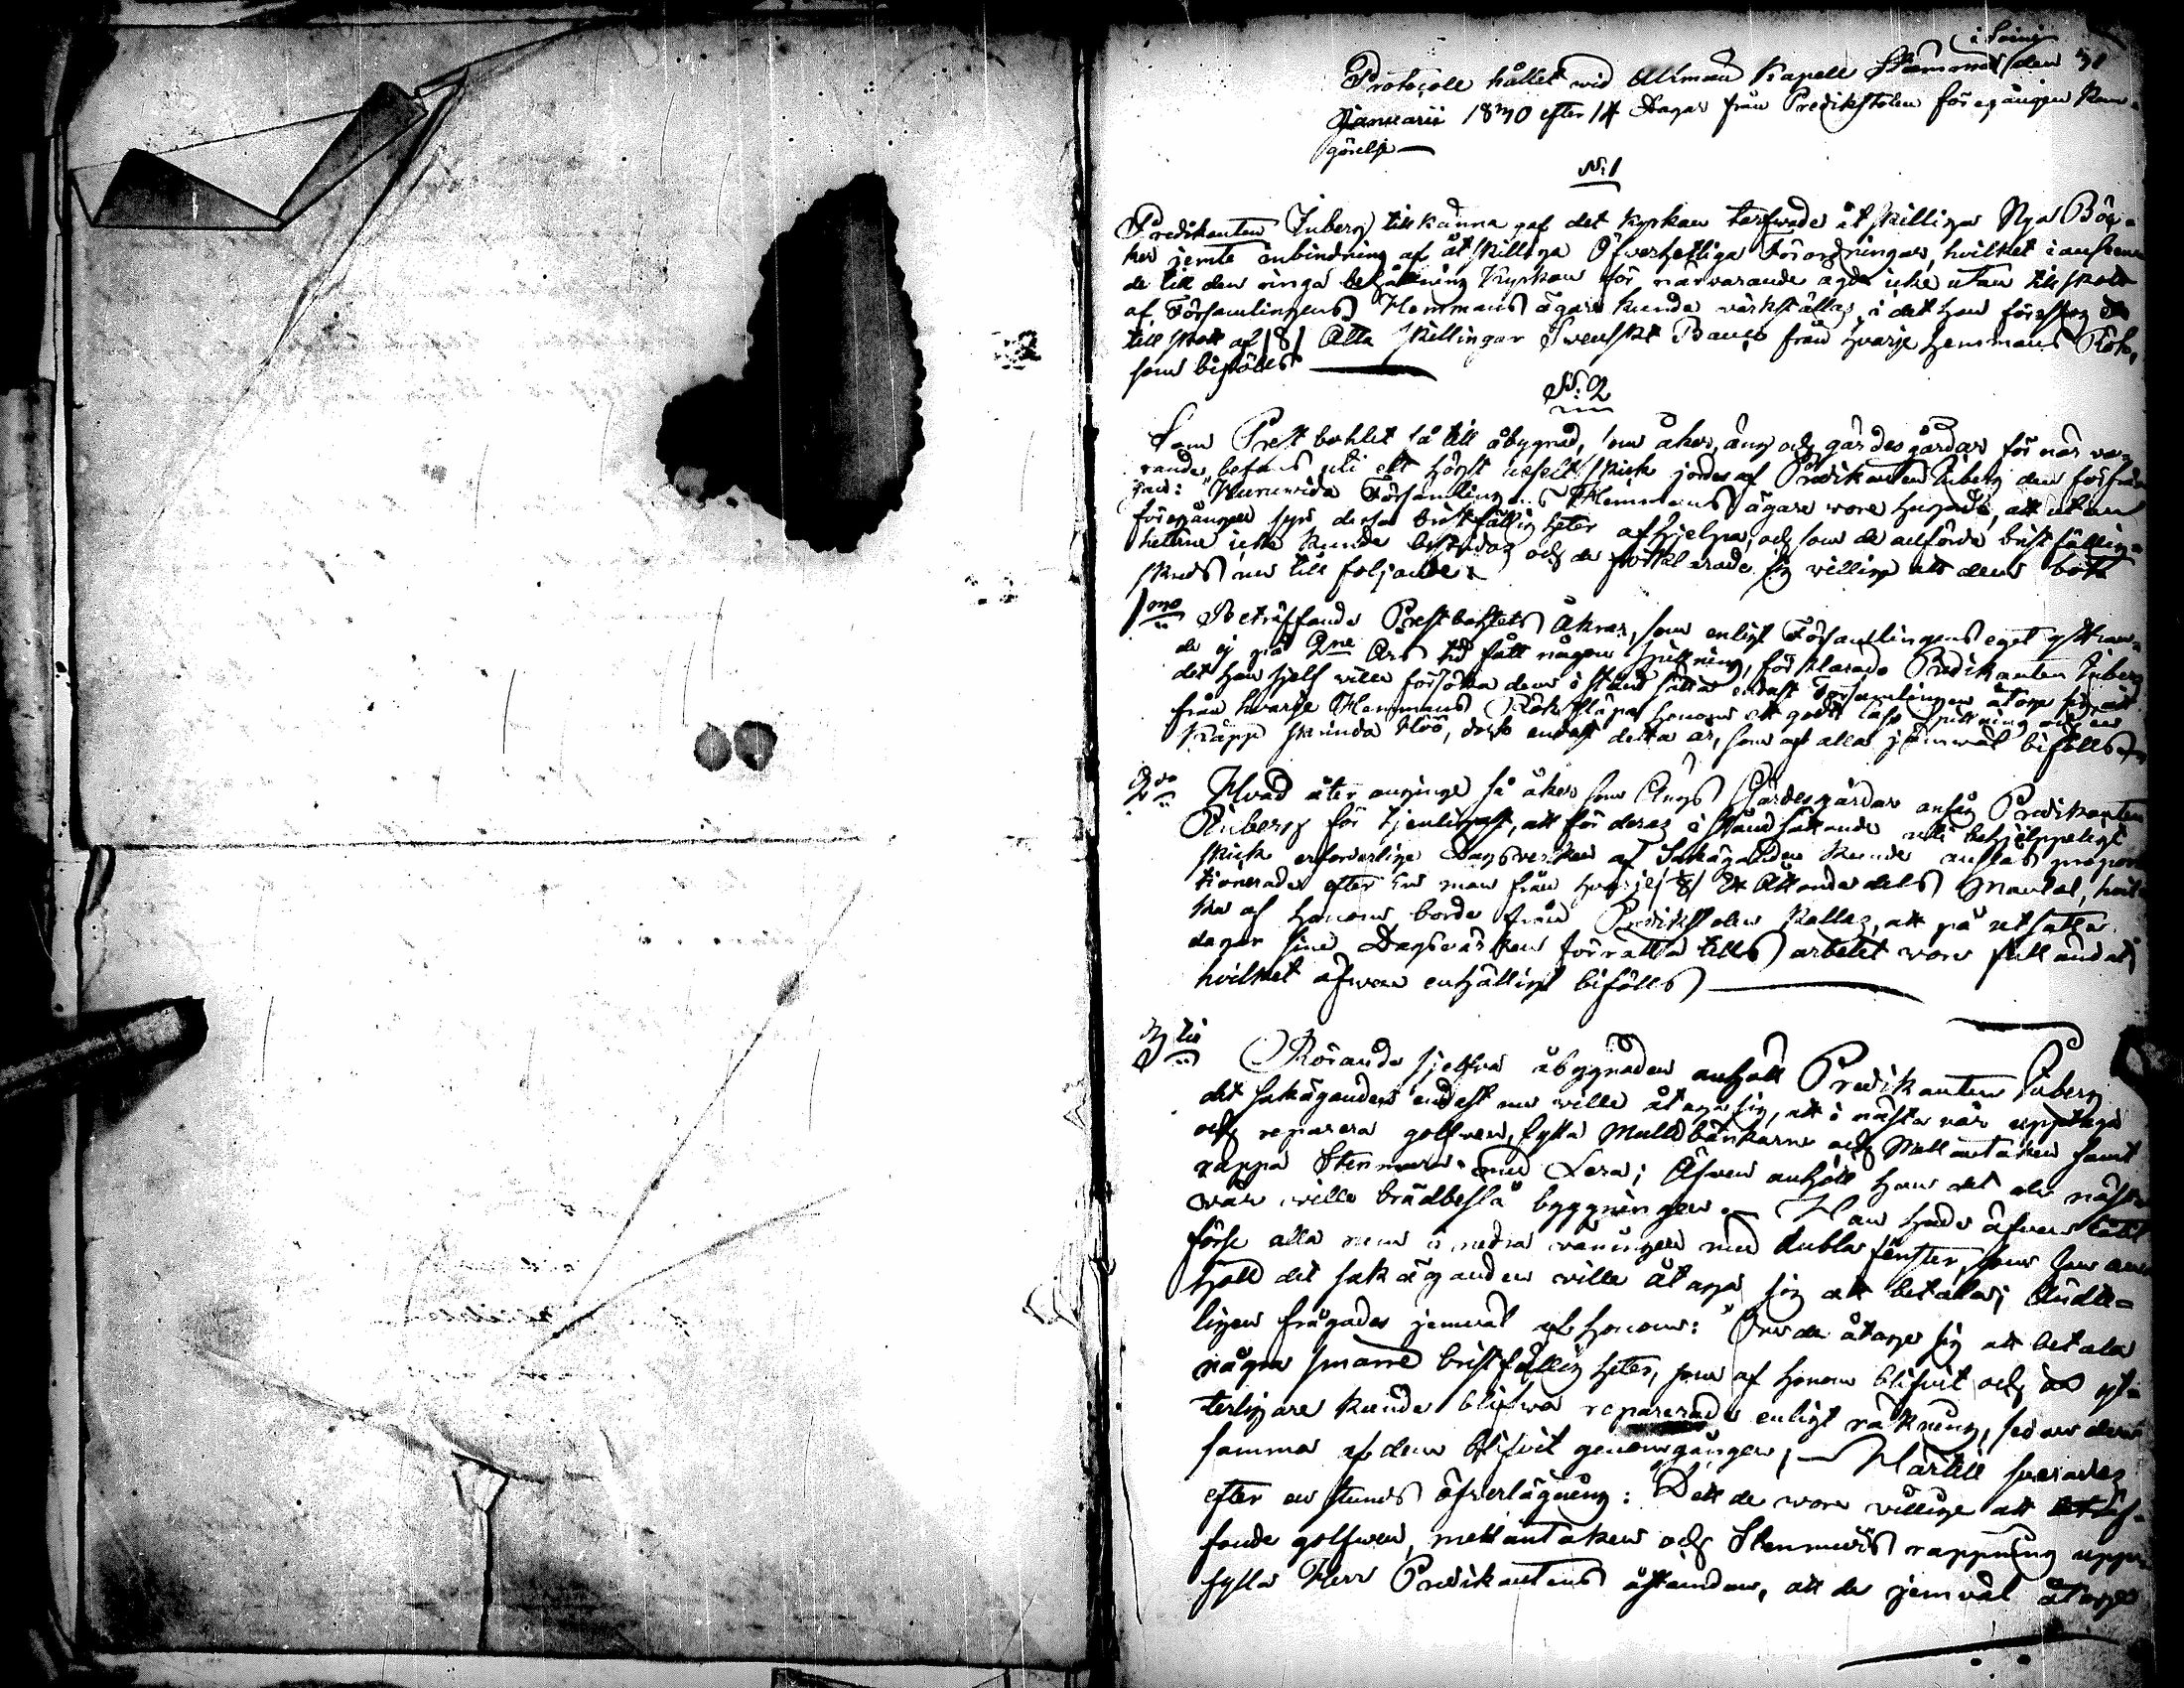 i Soini
Protocoll hållet wid Kapell Stämma den 31
Januarii 1830 efter 14 Dagar från Predikstolen föregången kun-
görelse
N:1
Predikanten Inberg tillkänna gaf det kyrkan tarfwade åtskilliga Nya Böc-
ker jemte inbindning af åtskilliga Öfwerhetliga Förordningar, hvilket i anseen
de till den ringa behållning kyrkan för närvarande ägde icke utan tillskott
af Församlingens Hemmans ägare kunde värkställas, i det han föreslog et
tillskott af /8/ Åtta skillingar Swenskt Banco från hvarje hemmans Rök,
som bifölls
N:2
Som Prestbohlet så till åbygnad, som åker, äng och gärdesgårdar för när va-
rande befans uti ett högst uselt skick jordes af Predikanten Inberg den förfrå
gan: Huruwida Församlingens Hemmans ägare wore hugade, att utan
föregången syn dessa bristfälligheter afhjelpa, och som de anförda bristfällig-
heterne icke kunde bestridas och de förklarade sig willige att dem bota
skreds nu till följande
1mo Beträffande Prestbohlets Åkrar, som enligt Församlingens eget yttran-
de ej på 2ne Års tid fått någon spillning, förklarade Predikanten Inberg
det han sjelf wille försöka dem i stånd sätta endast Församlingen åtoge sig att
från hvarje Hemmans Rök släpa honom ett godt lass spillning och en
skrinda Höö, dock endast detta år, som af alla jämwäl bifölls
2do Hvad åter anginge så åker som Ängs Gärdesgårdar ansåg Predikanten
Inberg för tjenligast, att för deras i ståndsättande uti behjelppeligt
skick erforderlige Dagsverken af Sakäganden kunde anslås propor
tionerade efter en man från hvarje /1/8/ Ett Åttondedels Mantal, hvil
ka af honom borde från Predikstolen kallas, att på utsatta
dagar sine Dagsvärken förrätta tills arbetet wore fulländat,
hvilket äfwen enhälligt bifölls
3tio Rörande sjelfva åbyggnaden anhöll Predikanten Inberg
det sakäganden endast nu wille åtaga sig, att i nästa vår upptaga
och reparera golfwen, fylla Mullbänkarne och Mellantaken samt
rappa Stenmuren med Lera; Äfwen anhöll han det de nästa
wår wille brädbeslå byggningen. Han hade äfwen låtit
förse alla rum i nedra waningen med dubla fenster, som han an
höll det sakäganden wille åtaga sig att betala; Ändte-
ligen frågades jemwäl af honom: Om de åtoge sig att betala
några smärre bristfälligheter, som af honom blifvit och yt-
terligare kunde blifwa reparerade enligt räkning, sedan den
samma af dem blifvit genomgången; Härtill svarades
efter en stunds öfverläggning: Det de wore willige att beträf-
fande golfwen, mellantaken och Stenmurs rappning upp-
fylla Herr Predikantens åstundan, att de jemväl åtoge